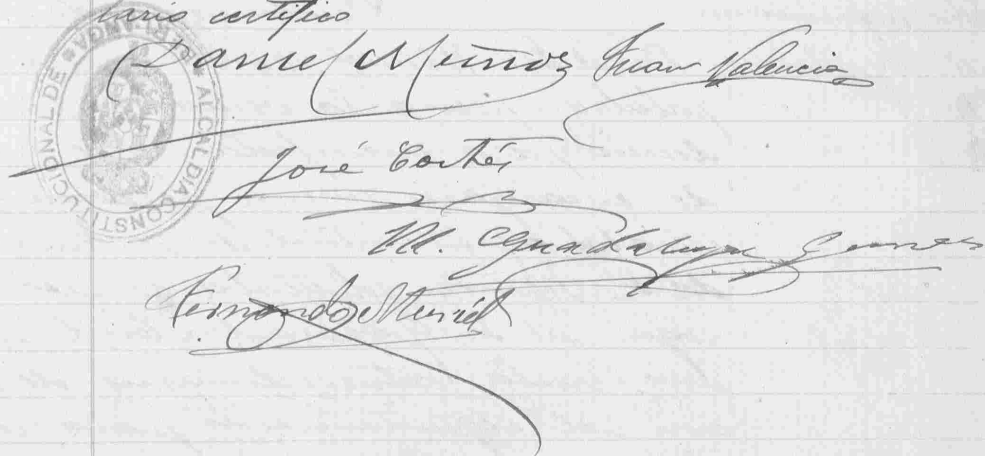 tario certifico
Daniel Muñoz Juan Valencia
José Cortés
M. Guadalupe
Fernando Muriel
ALCALDIA CONSTITUCIONAL DE